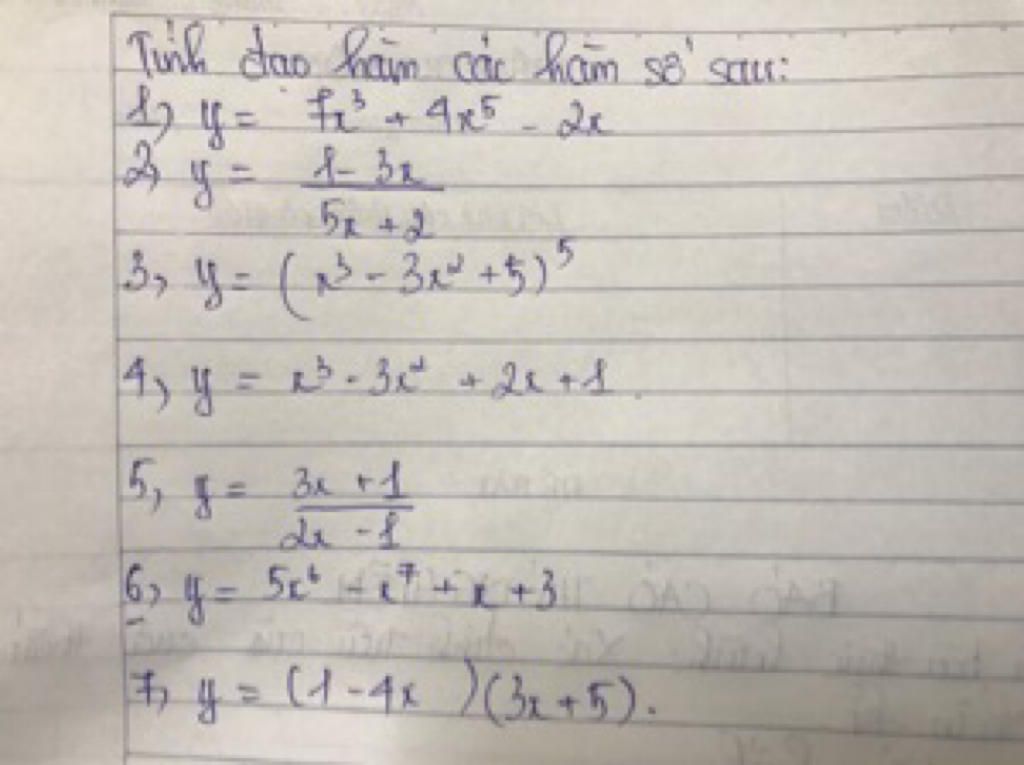 Tính đạo hàm các hàm số sau:
1) y = 7x³ + 4x⁵ - 2x
2) y = (1 - 3x)/(5x + 2)
3) y = (x³ - 3x² + 5)⁵
4) y = x³ - 3x² + 2x + 1.
5) y = (3x + 1)/(2x - 1)
6) y = 5x⁶ - x⁷ + x + 3
7) y = (1 - 4x)(3x + 5).